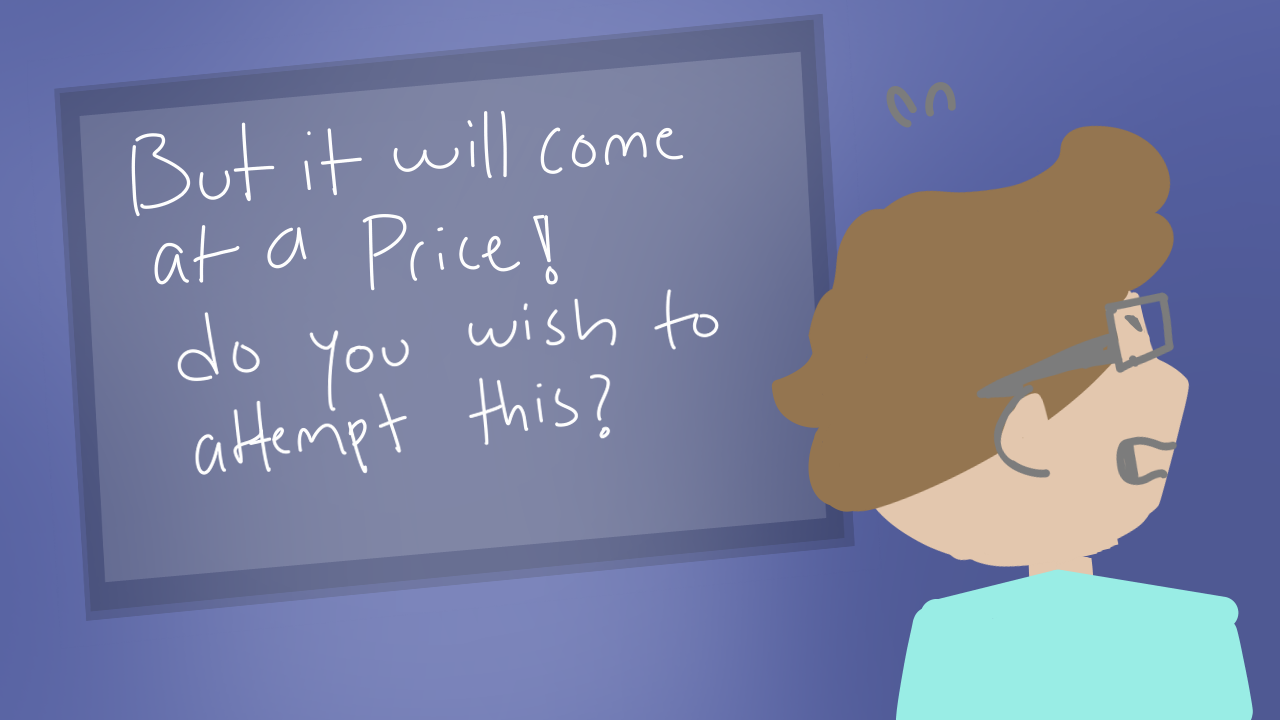 But it will come
at a Price!
do you wish to
attempt this?